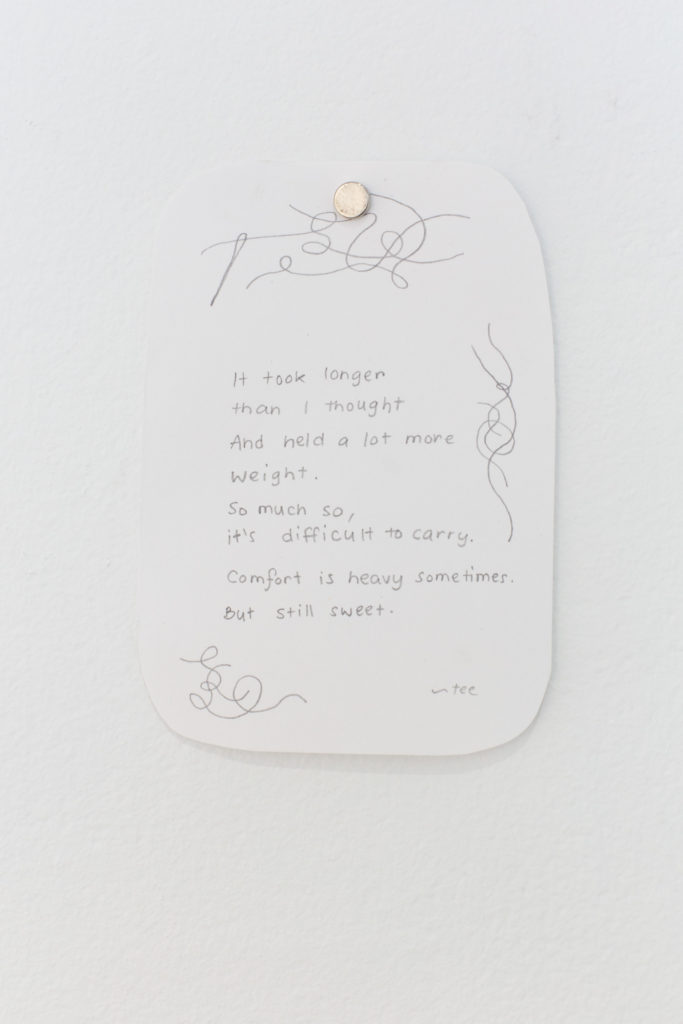 It took longer
than I thought
And held a lot more
weight.
So much so,
it's difficult to carry.
Comfort is heavy sometimes.
But still sweet.
~tee